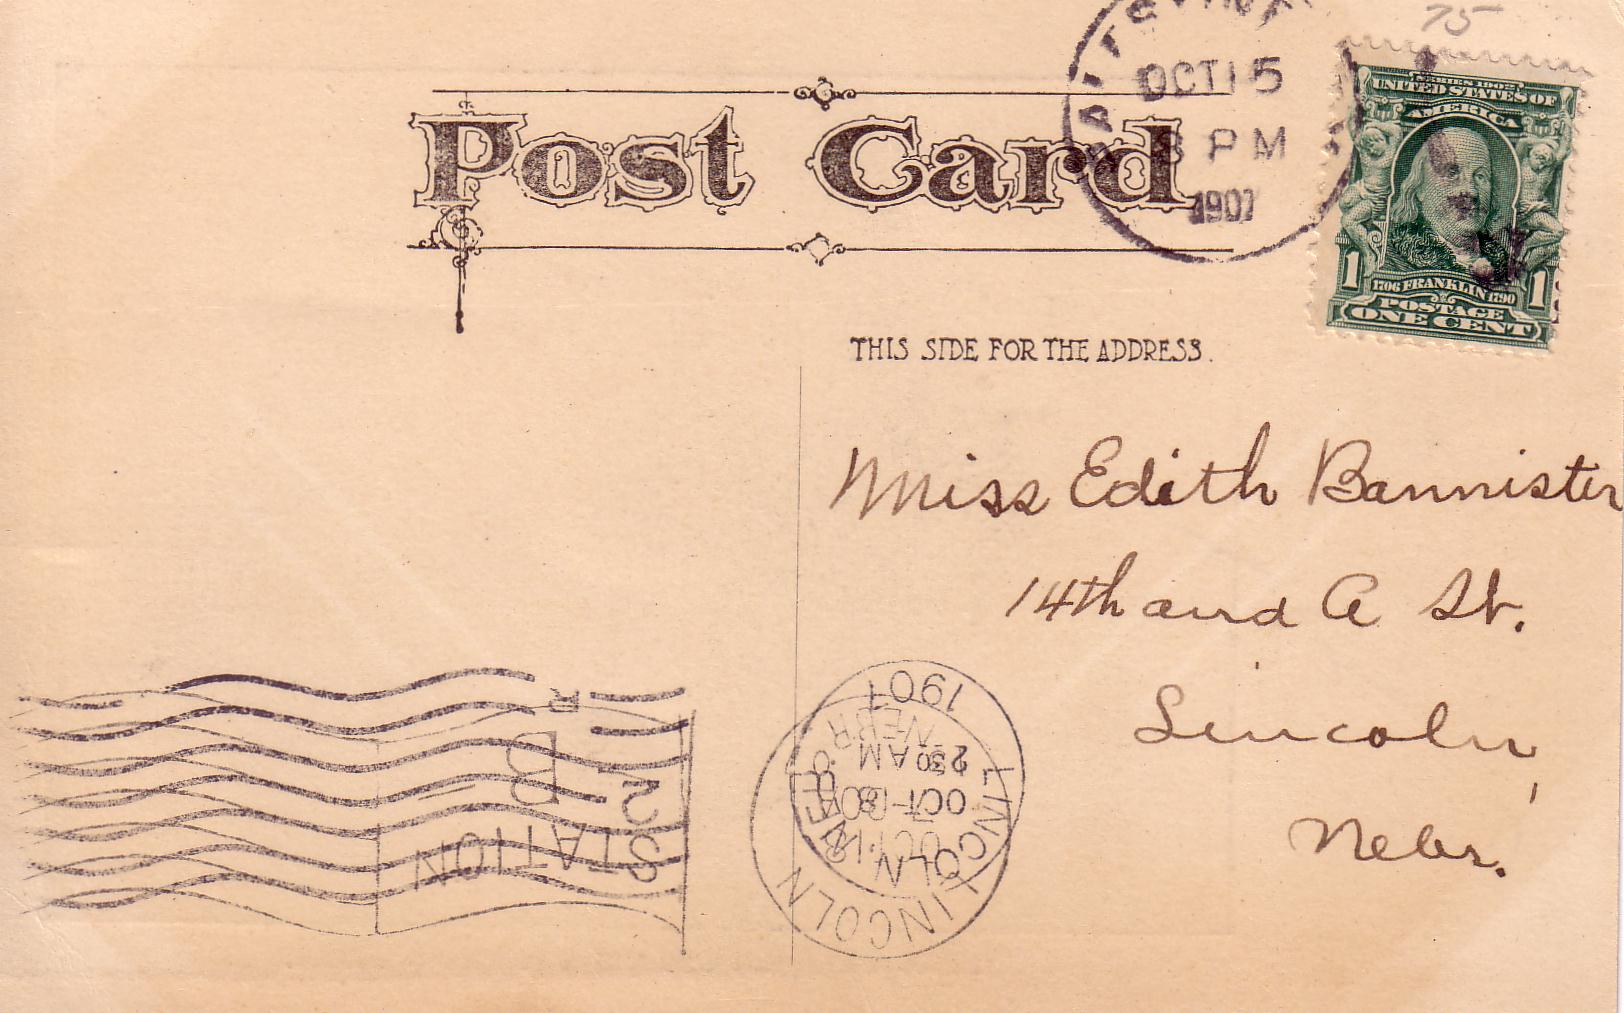 75
OCT 15
8 PM
1907
Post Card
SERIES 1902
UNITED STATES OF
AMERICA
1 1
1706 FRANKLIN 1790
POSTAGE
ONE CENT
THIS SIDE FOR THE ADDRESS.
Miss Edith Bannister
14th and A St.
Lincoln,
Nebr.
STATION
2
B
R
LINCOLN
OCT
2 30 AM
NEBR
1907
LINCOLN